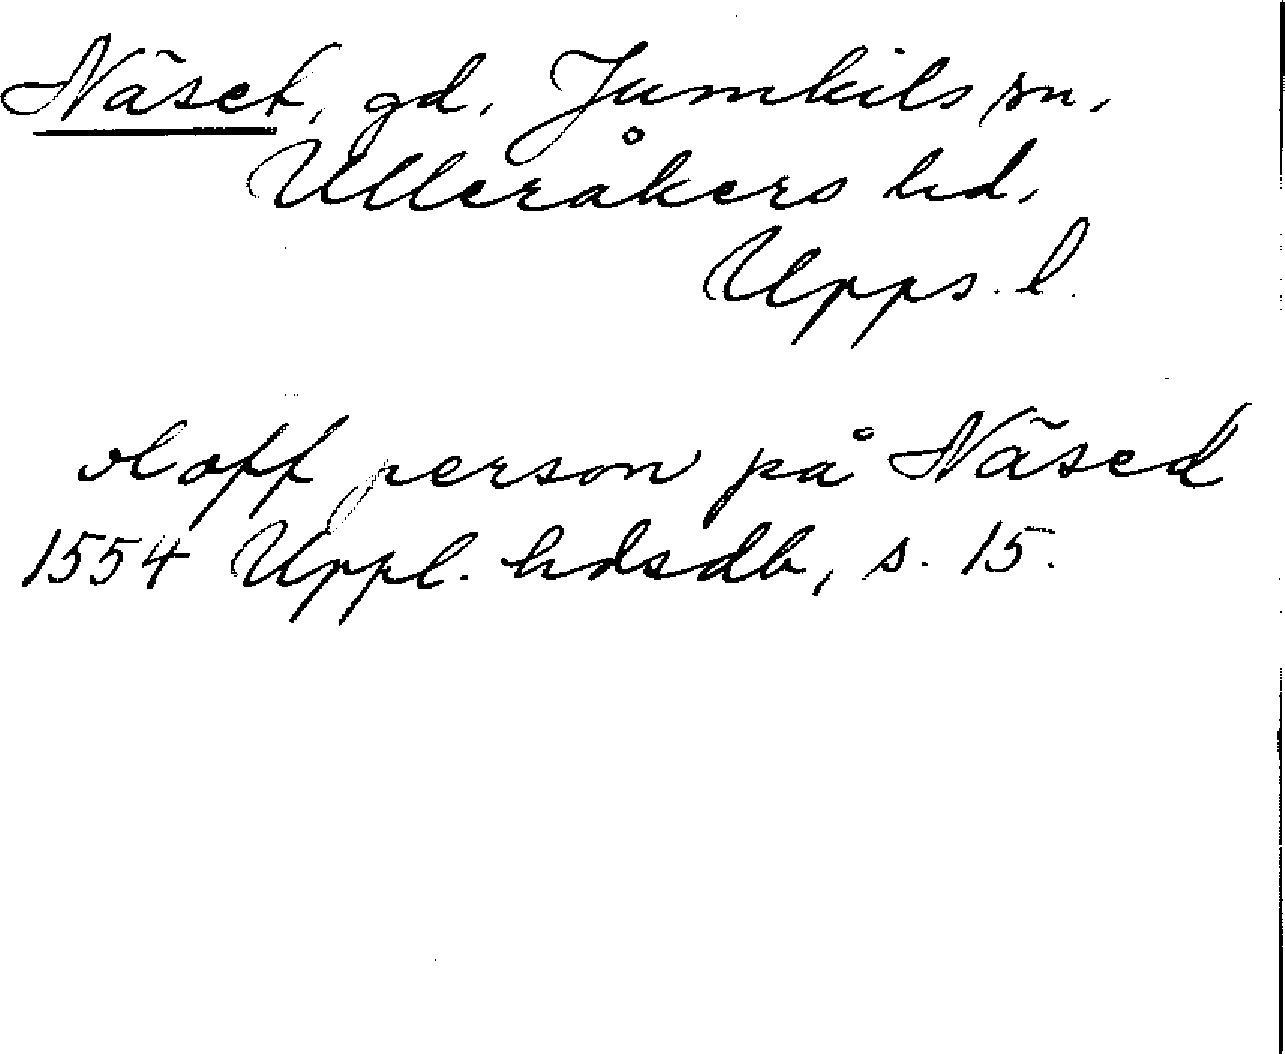 Näset, gd, Jumkils sn,
Ulleråkers hd,
Upps. l.
oloff person på Näsed
1554 Uppl. hdsdb, s. 15.